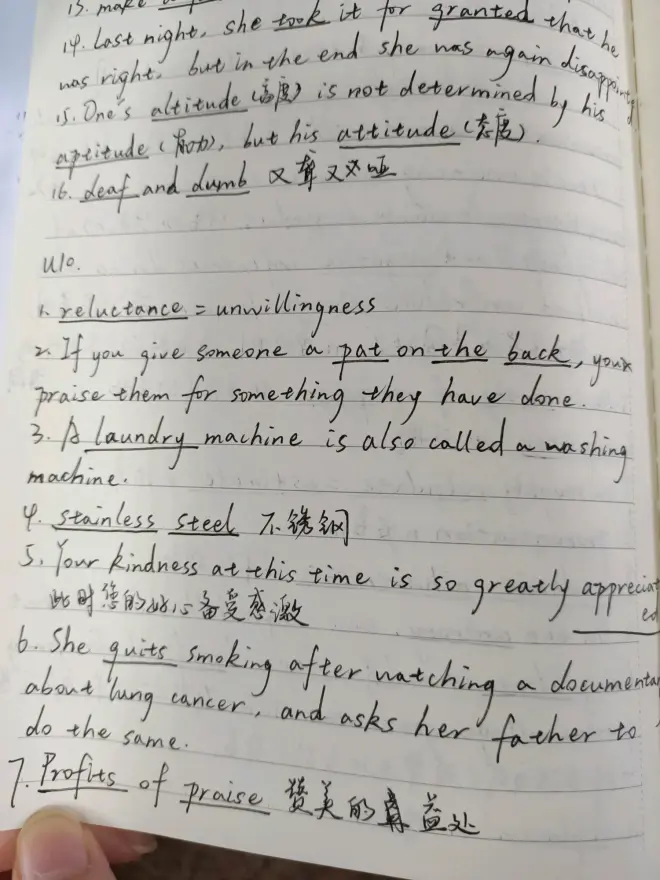 13. make
14. Last night, she took it for granted that he
was right, but in the end she was again disappointed
15. One's altitude (高度) is not determined by his
aptitude (能力), but his attitude (态度).
16. deaf and dumb 又聋又哑
U10.
1. reluctance = unwillingness
2. If you give someone a pat on the back, your
praise them for something they have done.
3. A laundry machine is also called a washing
machine.
4. stainless steel 不锈钢
5. Your kindness at this time is so greatly appreciat
ed
此时您的好心备受感激
6. She quits smoking after watching a documenta
about lung cancer, and asks her father to
do the same.
7. Profits of praise 赞美的益处